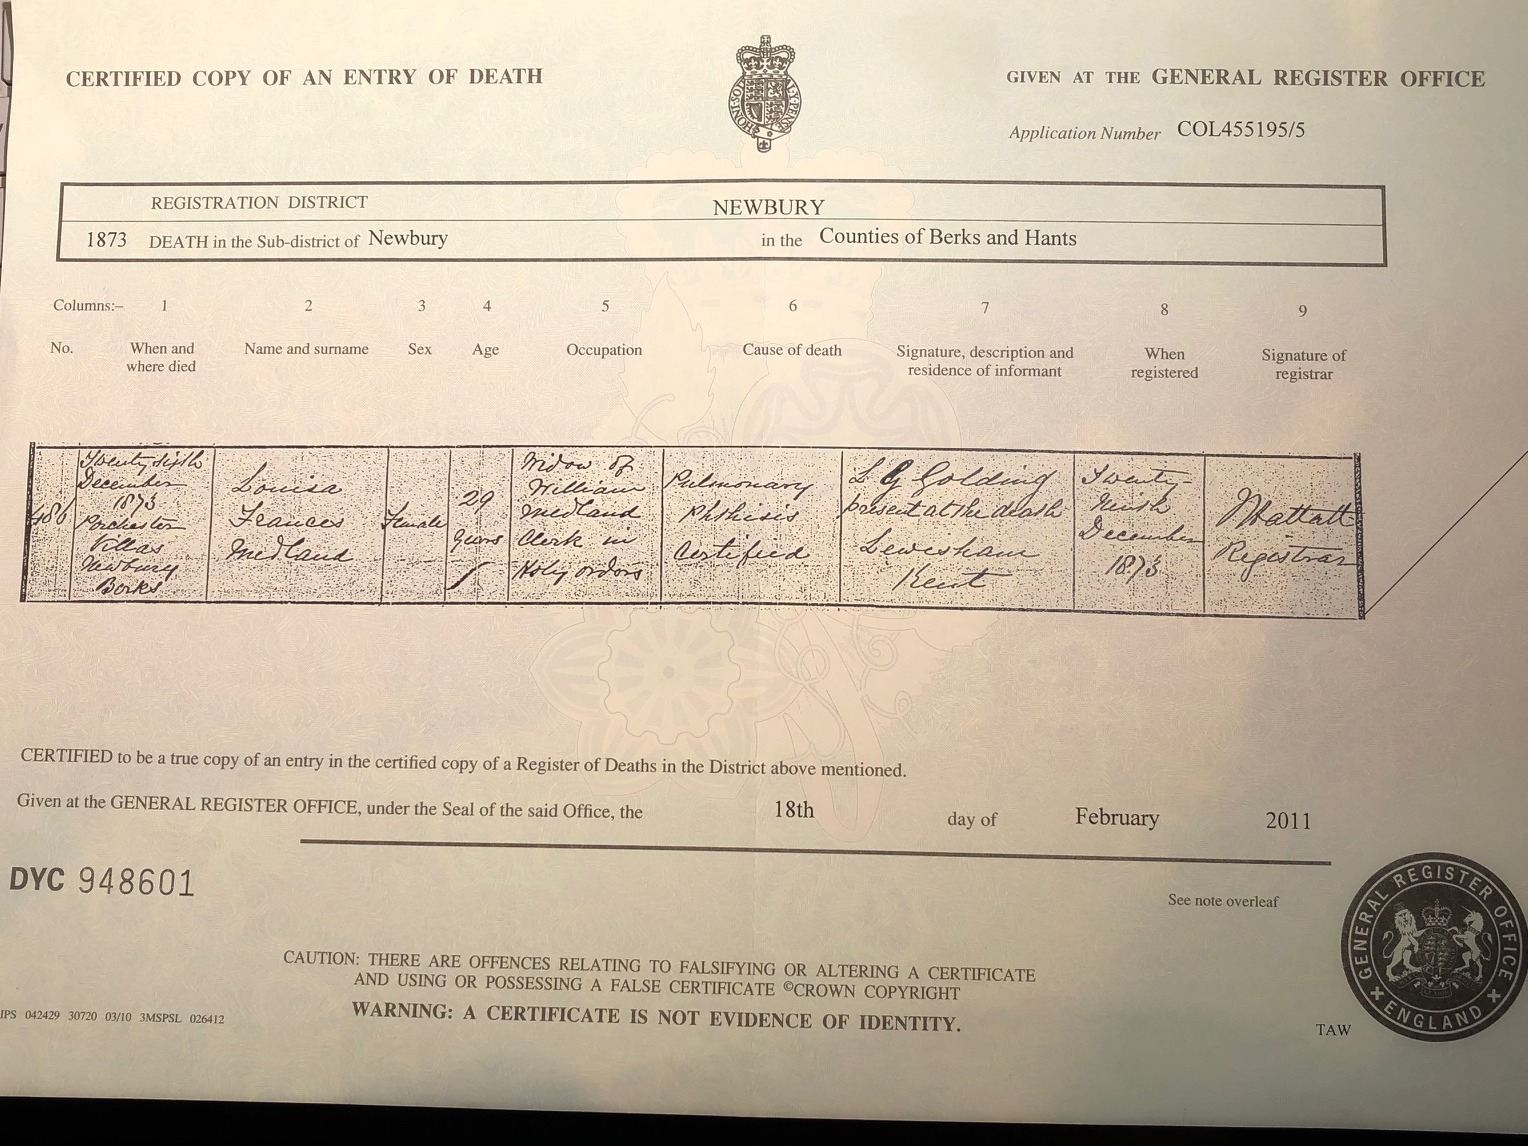 CERTIFIED COPY OF AN ENTRY OF DEATH
GIVEN AT THE GENERAL REGISTER OFFICE
Application Number COL455195/5
REGISTRATION DISTRICT NEWBURY
1873 DEATH in the Sub-district of Newbury in the Counties of Berks and Hants
Columns:- 1 2 3 4 5 6 7 8 9
No.
When and
where died
Name and surname
Sex
Age
Occupation
Cause of death
Signature, description and
residence of informant
When
registered
Signature of
registrar
486
Twenty sixth
December
1873
Porchester
Villas
Newbury
Berks
Louisa
Frances
Medland
Female
29
years
Widow of
William
Medland
Clerk in
Holy orders
Pulmonary
Phthisis
Certified
L G Golding
present at the death
Lewisham
Kent
Twenty-
Ninth
December
1873
Registrar
CERTIFIED to be a true copy of an entry in the certified copy of a Register of Deaths in the District above mentioned.
Given at the GENERAL REGISTER OFFICE, under the Seal of the said Office, the 18th day of February 2011
DYC 948601
See note overleaf
CAUTION: THERE ARE OFFENCES RELATING TO FALSIFYING OR ALTERING A CERTIFICATE
AND USING OR POSSESSING A FALSE CERTIFICATE ©CROWN COPYRIGHT
WARNING: A CERTIFICATE IS NOT EVIDENCE OF IDENTITY.
IPS 042429 30720 03/10 3MSPSL 026412
TAW
GENERAL REGISTER OFFICE
ENGLAND